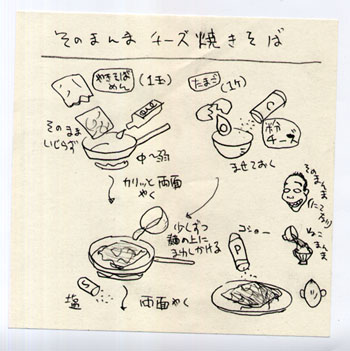 そのまんま チーズ焼きそば
やきそば
めん
(1玉)
たまご
(1ケ)
粉
チーズ
そのまま
いじらず
中〜弱
まぜておく
カリッと両面
やく
少しずつ
麺の上に
まわしかける
そのまんま
ねこ
まんま
コショー
P
塩
両面やく